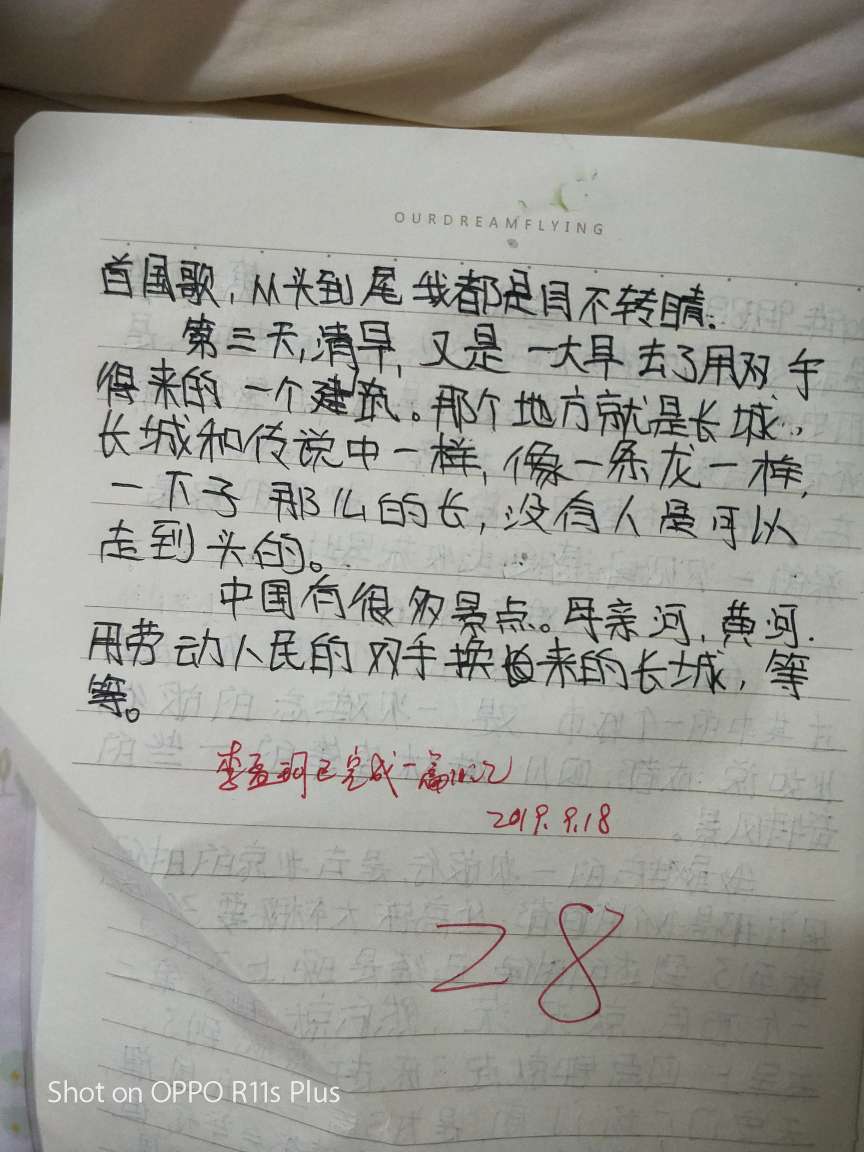 OURDREAMFLYING
首国歌，从头到尾我都是目不转睛.
第三天,清早,又是一大早去了用双手
得来的一个建筑。那个地方就是长城.,
长城和传说中一样,像一条龙一样,
一下子那么的长,没有人是可以
走到头的。
中国有很多景点。母亲河,黄河.
用劳动人民的双手换来的长城,等
等。
已完成一篇
2019.9.18
28
Shot on OPPO R11s Plus